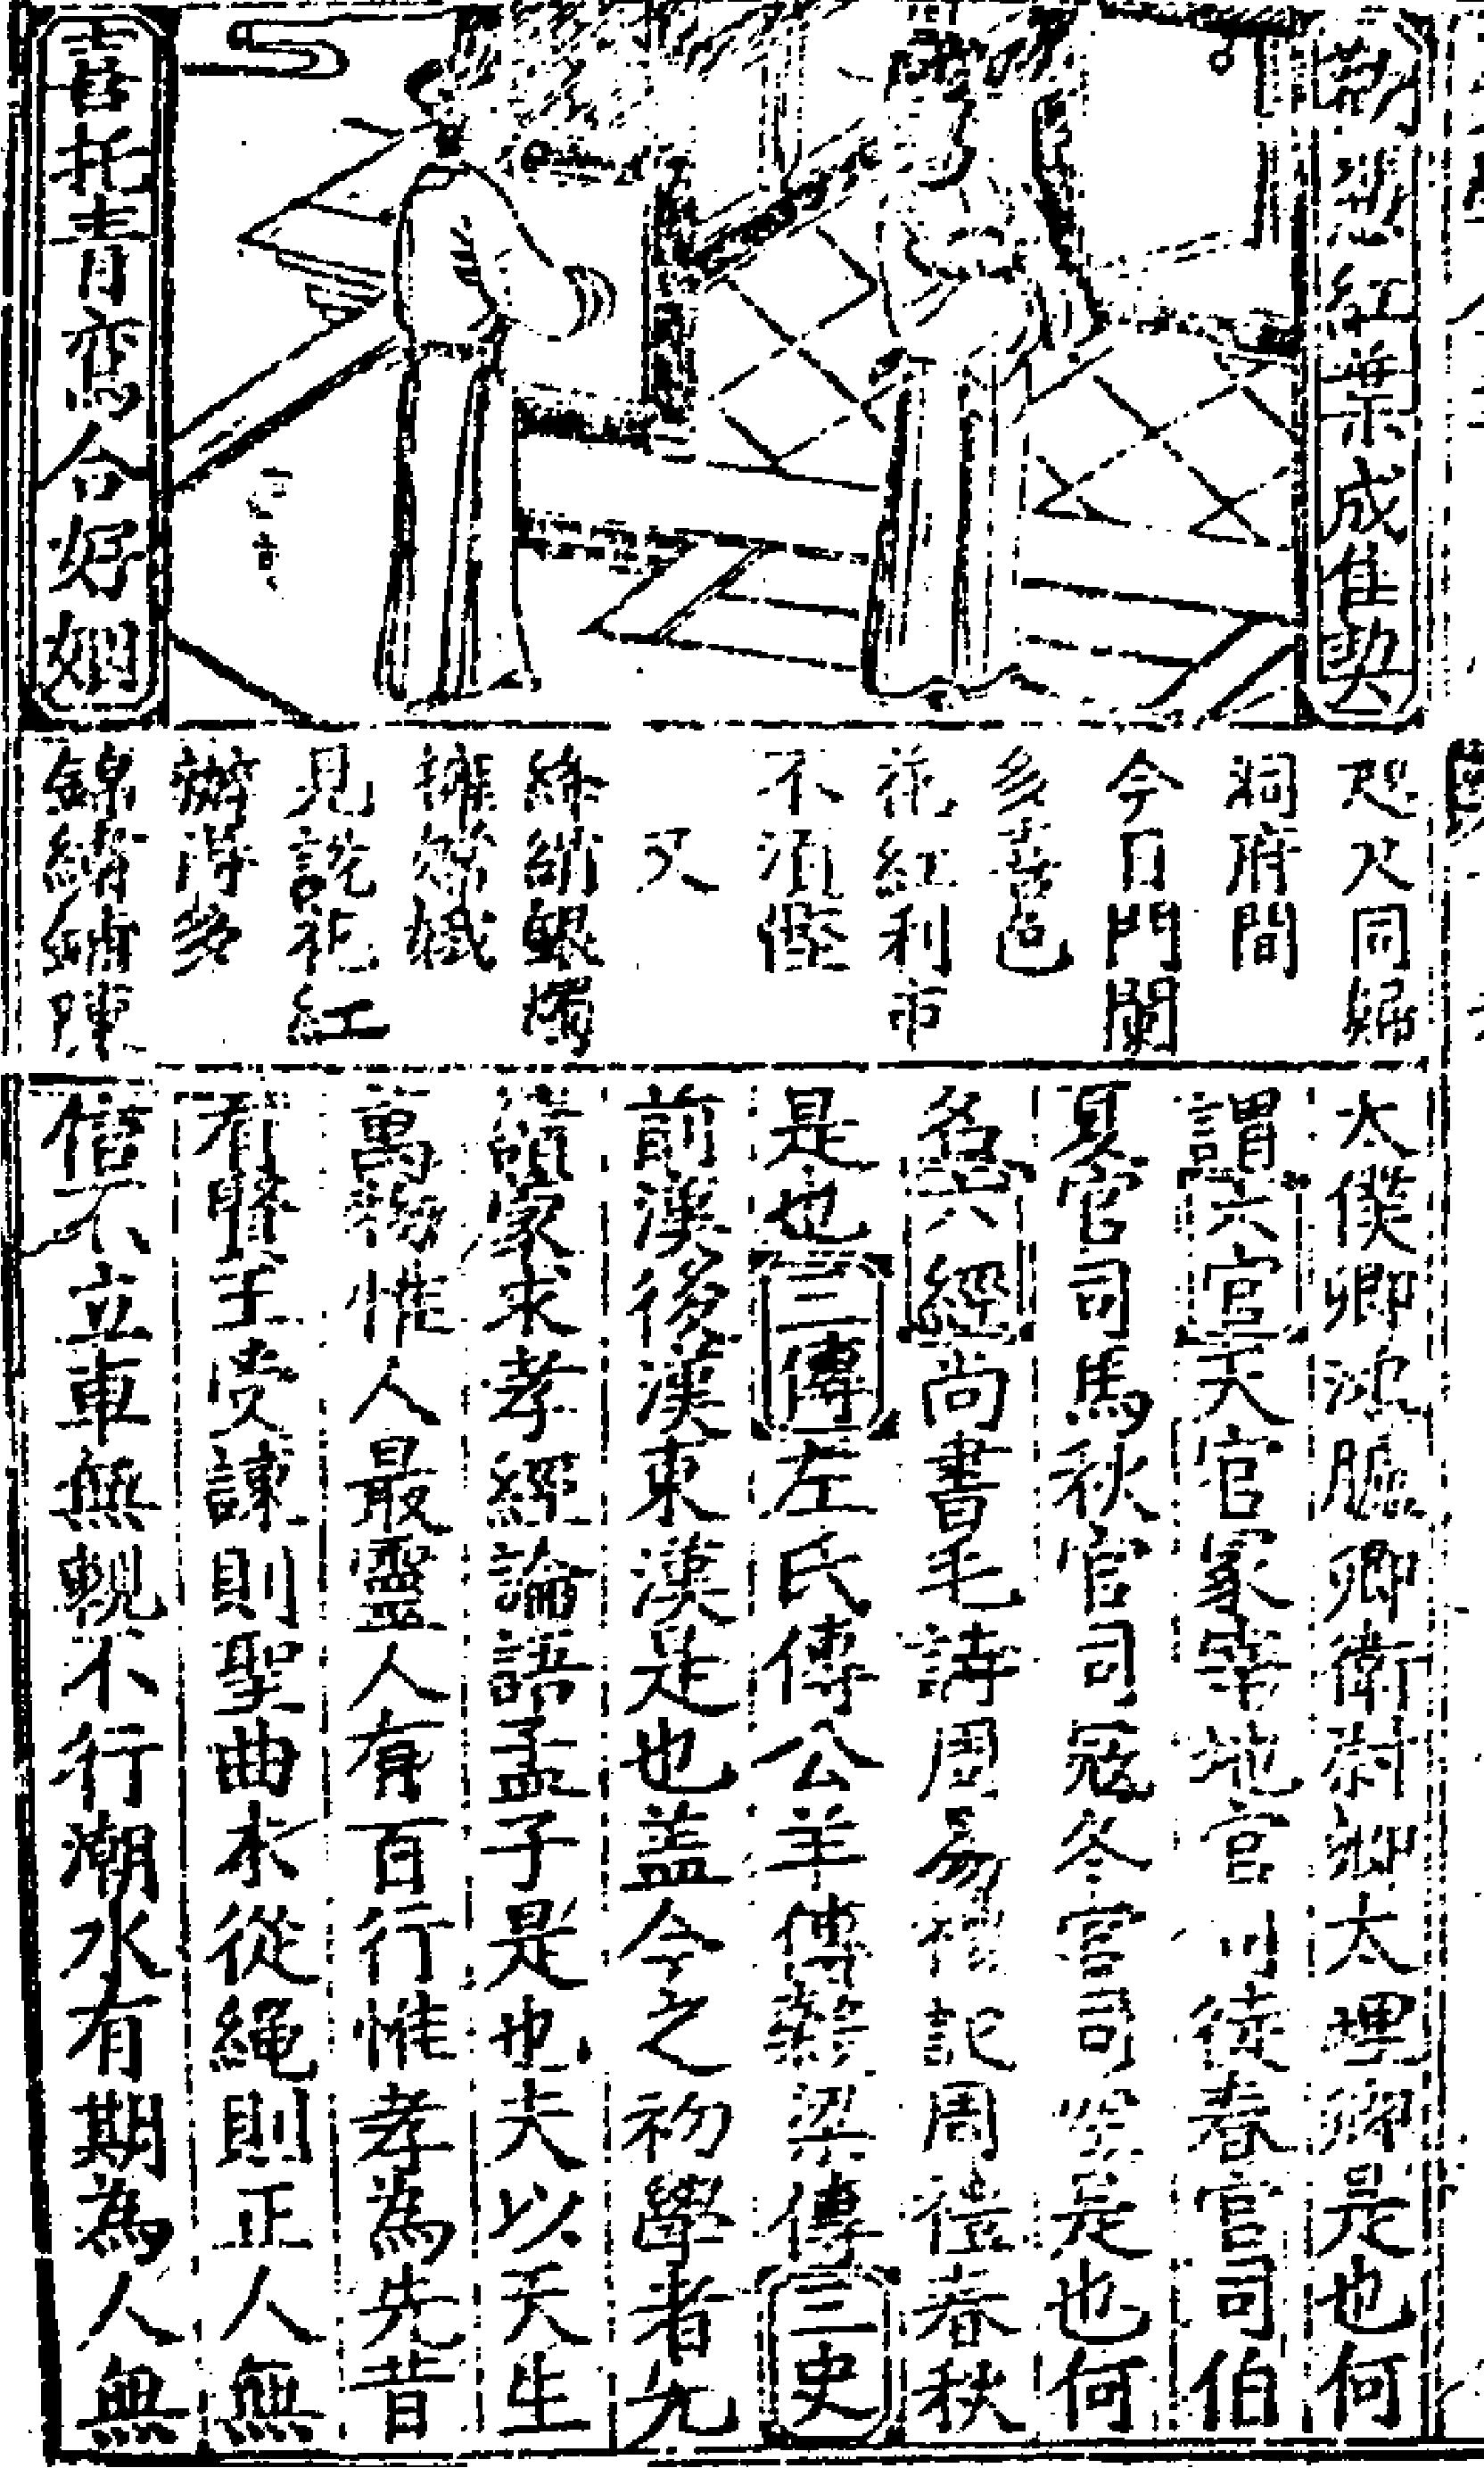 勒 愁紅葉成佳契
喜托青鸞合好姻
咫尺同歸
洞府間
今日門闌
多喜色
花紅利市
不須慳
又
絳綃銀燭
擁 娥
見說花紅
辦得多
錦繡 陳
太僕卿鴻臚卿衛尉卿太理卿是也何
謂六官天官冢宰地官司徒春官司伯
夏官司馬秋官司寇冬官司空是也何
名六經尚書毛詩周易禮記周禮春秋
是也三傳左氏傳公羊傳穀梁傳三史
前漢後漢東漢是也盖今之初學者先
讀蒙求孝經論語孟子是也夫以天生
萬物惟人最靈人有百行惟孝為先昔
有賢王受諫則聖曲木從繩則正人無
信不立車無輗不行潮水有期為人無